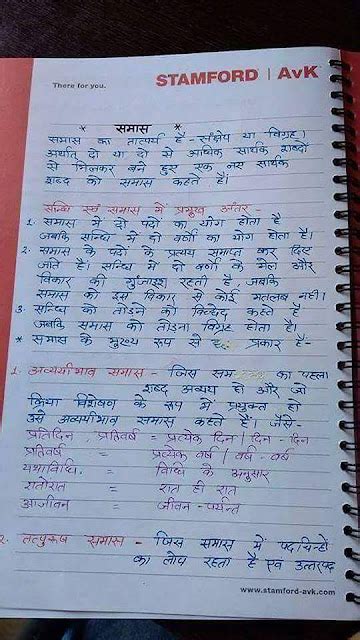 There for you.
STAMFORD | AvK
* समास *
समास का तात्पर्य है - संक्षेप या विग्रह।
अर्थात् दो या दो से अधिक सार्थक शब्दों
से मिलकर बने हुए एक नए सार्थक
शब्द को समास कहते हैं।
सन्धि एवं समास में प्रमुख अंतर -
1. समास में दो पदों का योग होता है
जबकि सन्धि में दो वर्णों का योग होता है।
2. समास के पदों के प्रत्यय समाप्त कर दिए
जाते है। सन्धि में दो वर्णों के मेल और
विकार की गुंजाइश रहती है, जबकि
समास को इस विकार से कोई मतलब नहीं।
3. सन्धि को तोड़ने को विच्छेद कहते हैं
जबकि समास को तोड़ना विग्रह होता है।
* समास के मुख्य रूप से प्रकार हैं-
1. अव्ययीभाव समास - जिस का पहला
शब्द अव्यय हो और जो
क्रिया विशेषण के रूप में प्रयुक्त हो
उसे अव्ययीभाव समास कहते हैं। जैसे-
प्रतिदिन, प्रतिवर्ष = प्रत्येक दिन | दिन - दिन
प्रतिवर्ष = प्रत्येक वर्ष | वर्ष - वर्ष
यथाविधि = विधि के अनुसार
रातोरात = रात ही रात
आजीवन = जीवन - पर्यन्त
2. तत्पुरुष समास - जिस समास में पद चिन्हों
का लोप रहता है एवं उत्तरपद
www.stamford-avk.com